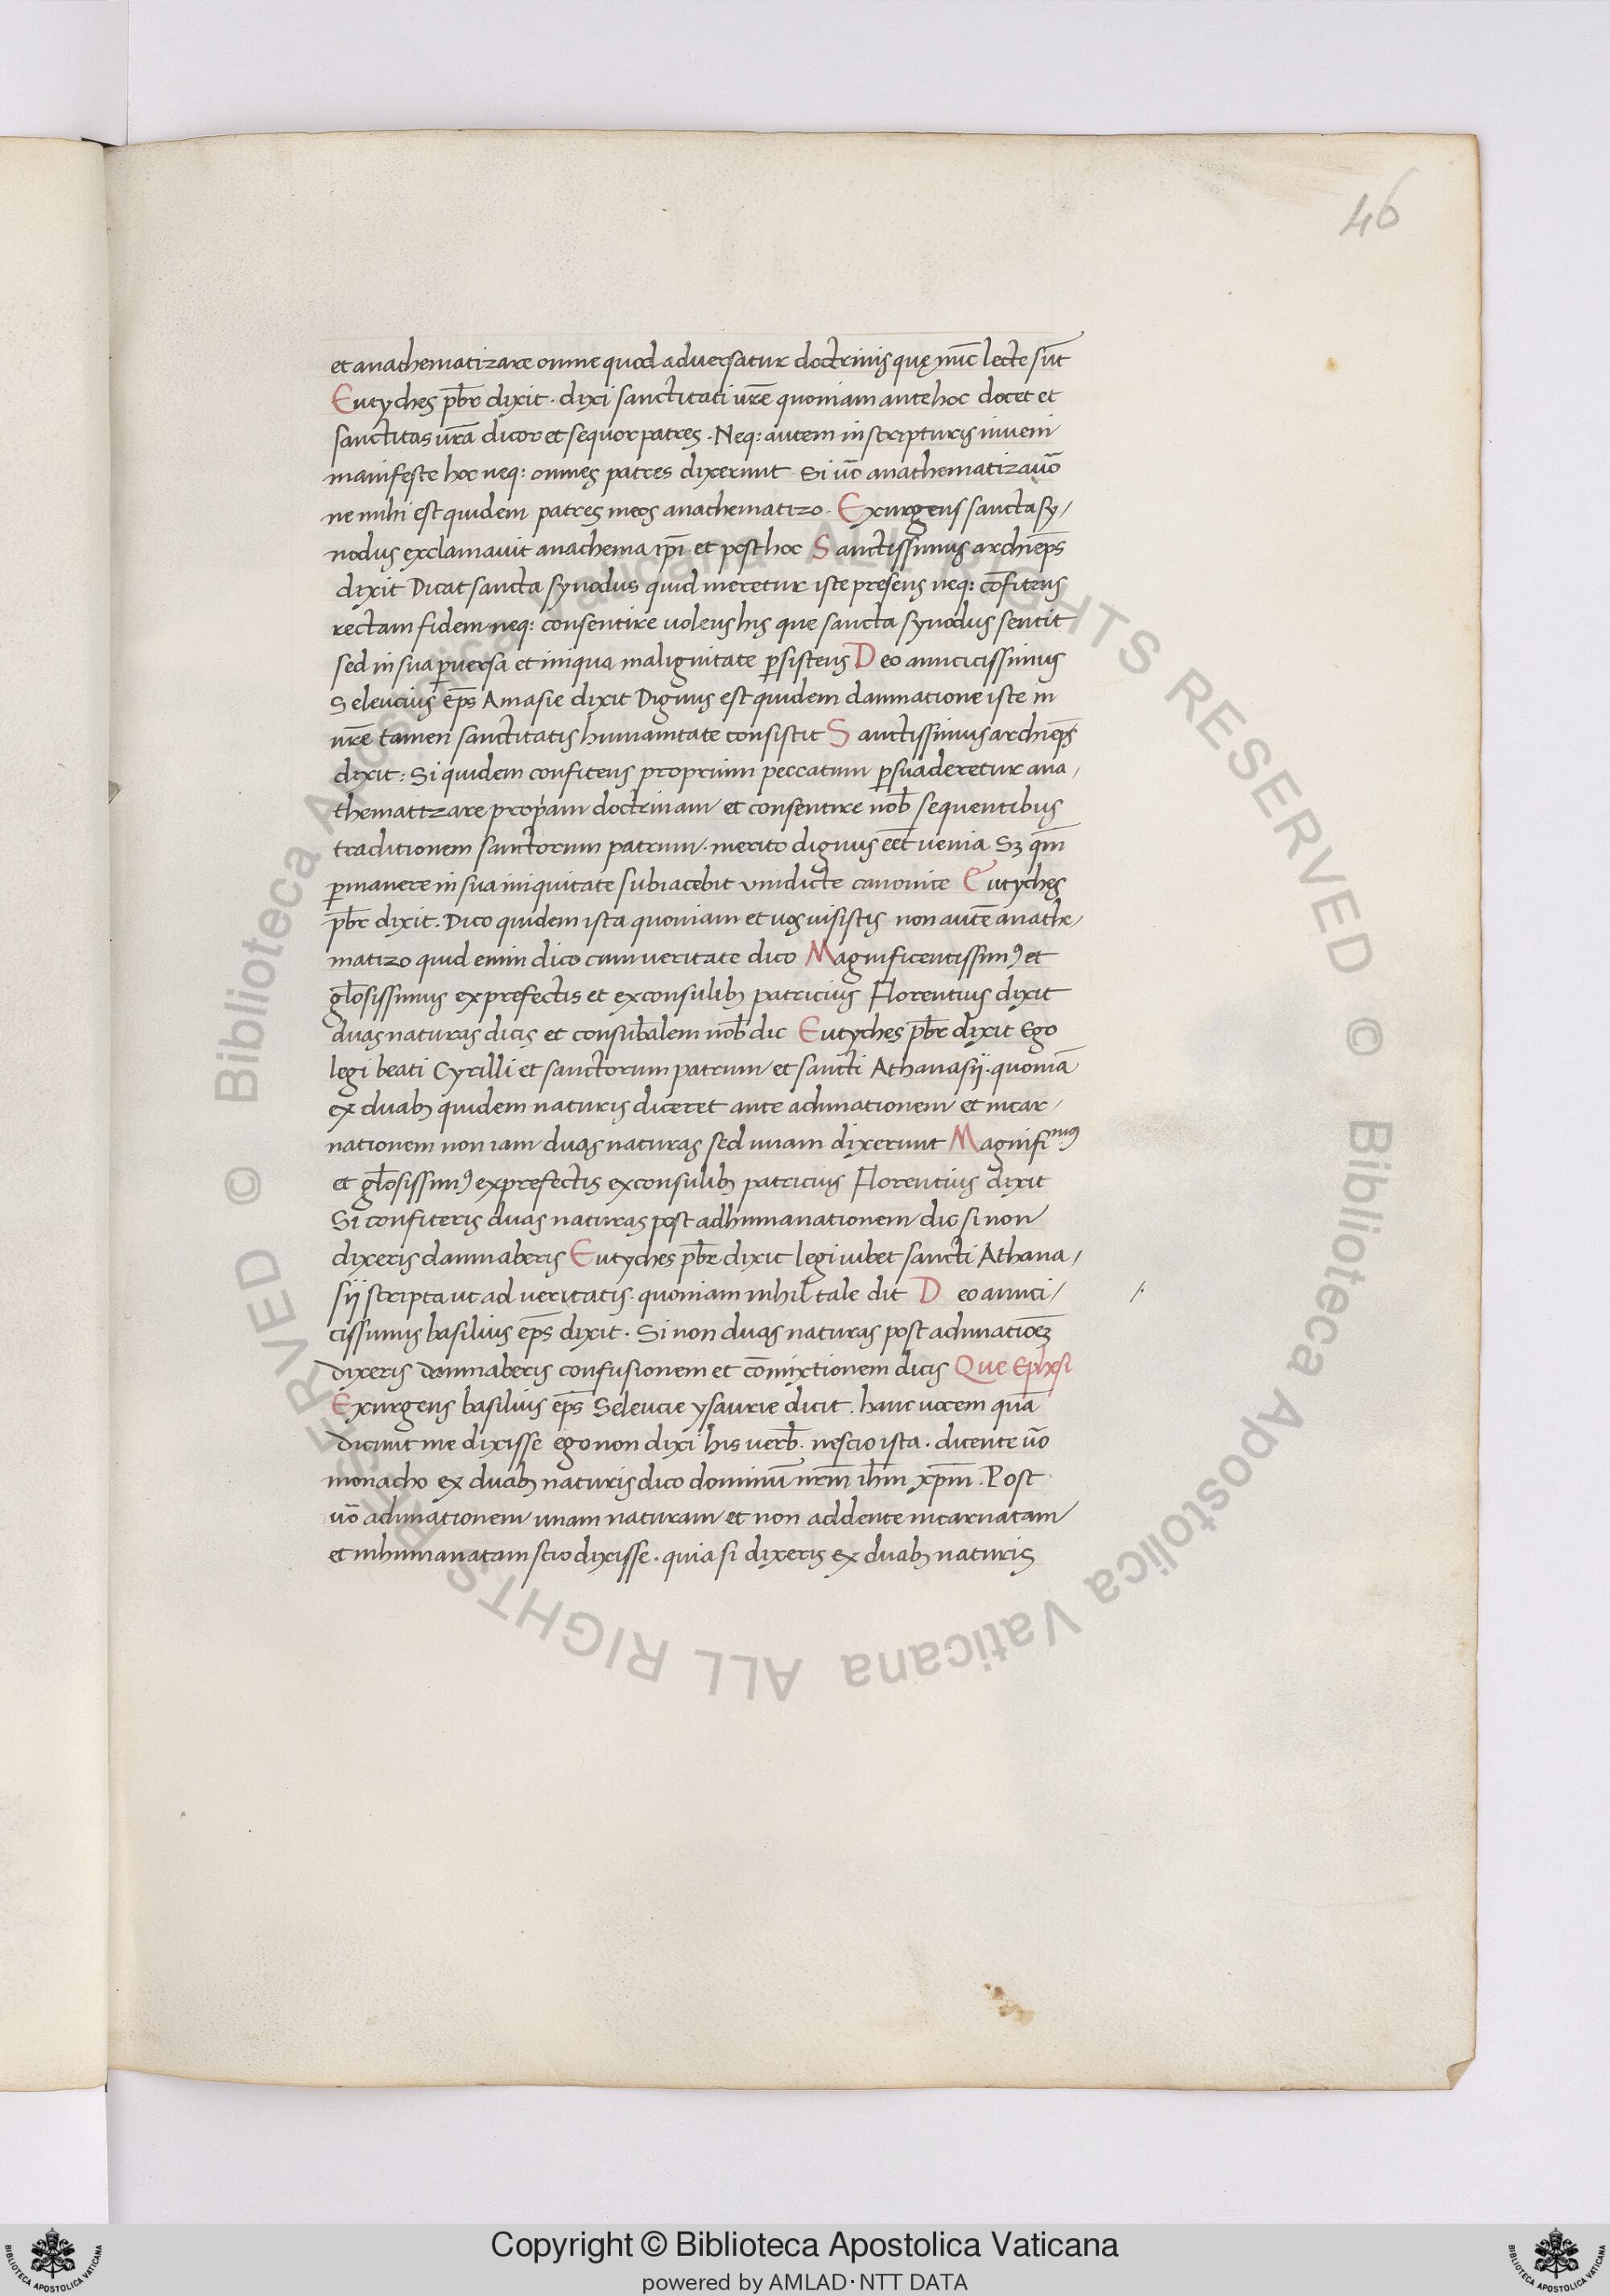 46
et anathematizare omne quod aduersatur doctrinis quę nūc lecte sūt
Eutyches pb̄r dixit · dixi sanctitati ur̄e quoniam ante hoc docet et
sanctitas ur̄a dicor et sequor patres · Neq: autem in scripturis inueni
manifeste hoc neq: omnes patres dixerunt Si ūo anathematizauō
ne mihi est quidem patres meos anathematizo · Exurgens sancta sy/
nodus exclamauit anathema ip̄i et post hoc Sanctissimus archiep̄s
dixit Dicat sancta synodus quid meretur iste presens neq: cōfitens
rectam fidem neq: consentire uolens his que sancta synodus sentit
sed in sua ꝑuersa et iniqua malignitate ꝑsistens Deo amicicissimus
Seleucius ep̄s Amasie dixit Dignus est quidem damnatione iste in
ur̄e tamen sanctitatis humanitate consistit Sanctissimus archiep̄s
dixit: Si quidem confitens proprium peccatum ꝑsuaderetur ana/
thematizare propiam doctrinam et consentire nob̄ sequentibus
traditionem sanctorum patrum · merito dignus eēt uenia Sꝫ qm̄
ꝑmanere in sua iniquitate subiacebit vindicte canonice Eutyches
pb̄r dixit. Dico quidem ista quoniam et uos uisistis non autē anathe/
matizo quid enim dico cum ueritate dico Magnificentissimꝰ et
gl̄osissimus exprefectis et exconsulibꝫ patricius Florentius dixit
duas naturas dicis et consub̄alem nob̄ dic Eutyches pb̄r dixit Ego
legi beati Cyrilli et sanctorum patrum et sancti Athanasij · quoniā
ex duabꝫ quidem naturis diceret ante adunationem et incar/
nationem non iam duas naturas sed unam dixerunt Magnifimꝰ
et gl̄osissimꝰ exprefectis exconsulibꝫ patricius Florentius dixit
Si confiteris duas naturas post adhumanationem dic si non
dixeris damnaberis Eutyches pb̄r dixit legi iubet sancti Athana/
sij scripta ut ad ueritatis · quoniam nihil tale dit Deo amici/
cissimus basilius ep̄s dixit · Si non duas naturas post adunatiōeꝫ
dixeris damnaberis confusionem et cōmixtionem dicis Que Ephesi
Exurgens basilius ep̄s Seleucie ysaurie dicit . hanc uocem quā
dicunt me dixisse ego non dixi his uerb̄ · nescio ista · dicente ūo
monacho ex duabꝫ naturis dico dominū nr̄m ih̄m xp̄m . Post
ūo adunationem unam naturam et non addente incarnatam
et inhumanatam scio dixisse · quia si dixeris ex duabꝫ naturis
© Biblioteca Apostolica Vaticana ALL RIGHTS RESERVED © Biblioteca Apostolica Vaticana ALL RIGHTS RESERVED
Copyright © Biblioteca Apostolica Vaticana
powered by AMLAD·NTT DATA
BIBLIOTECA APOSTOLICA VATICANA
BIBLIOTECA APOSTOLICA VATICANA